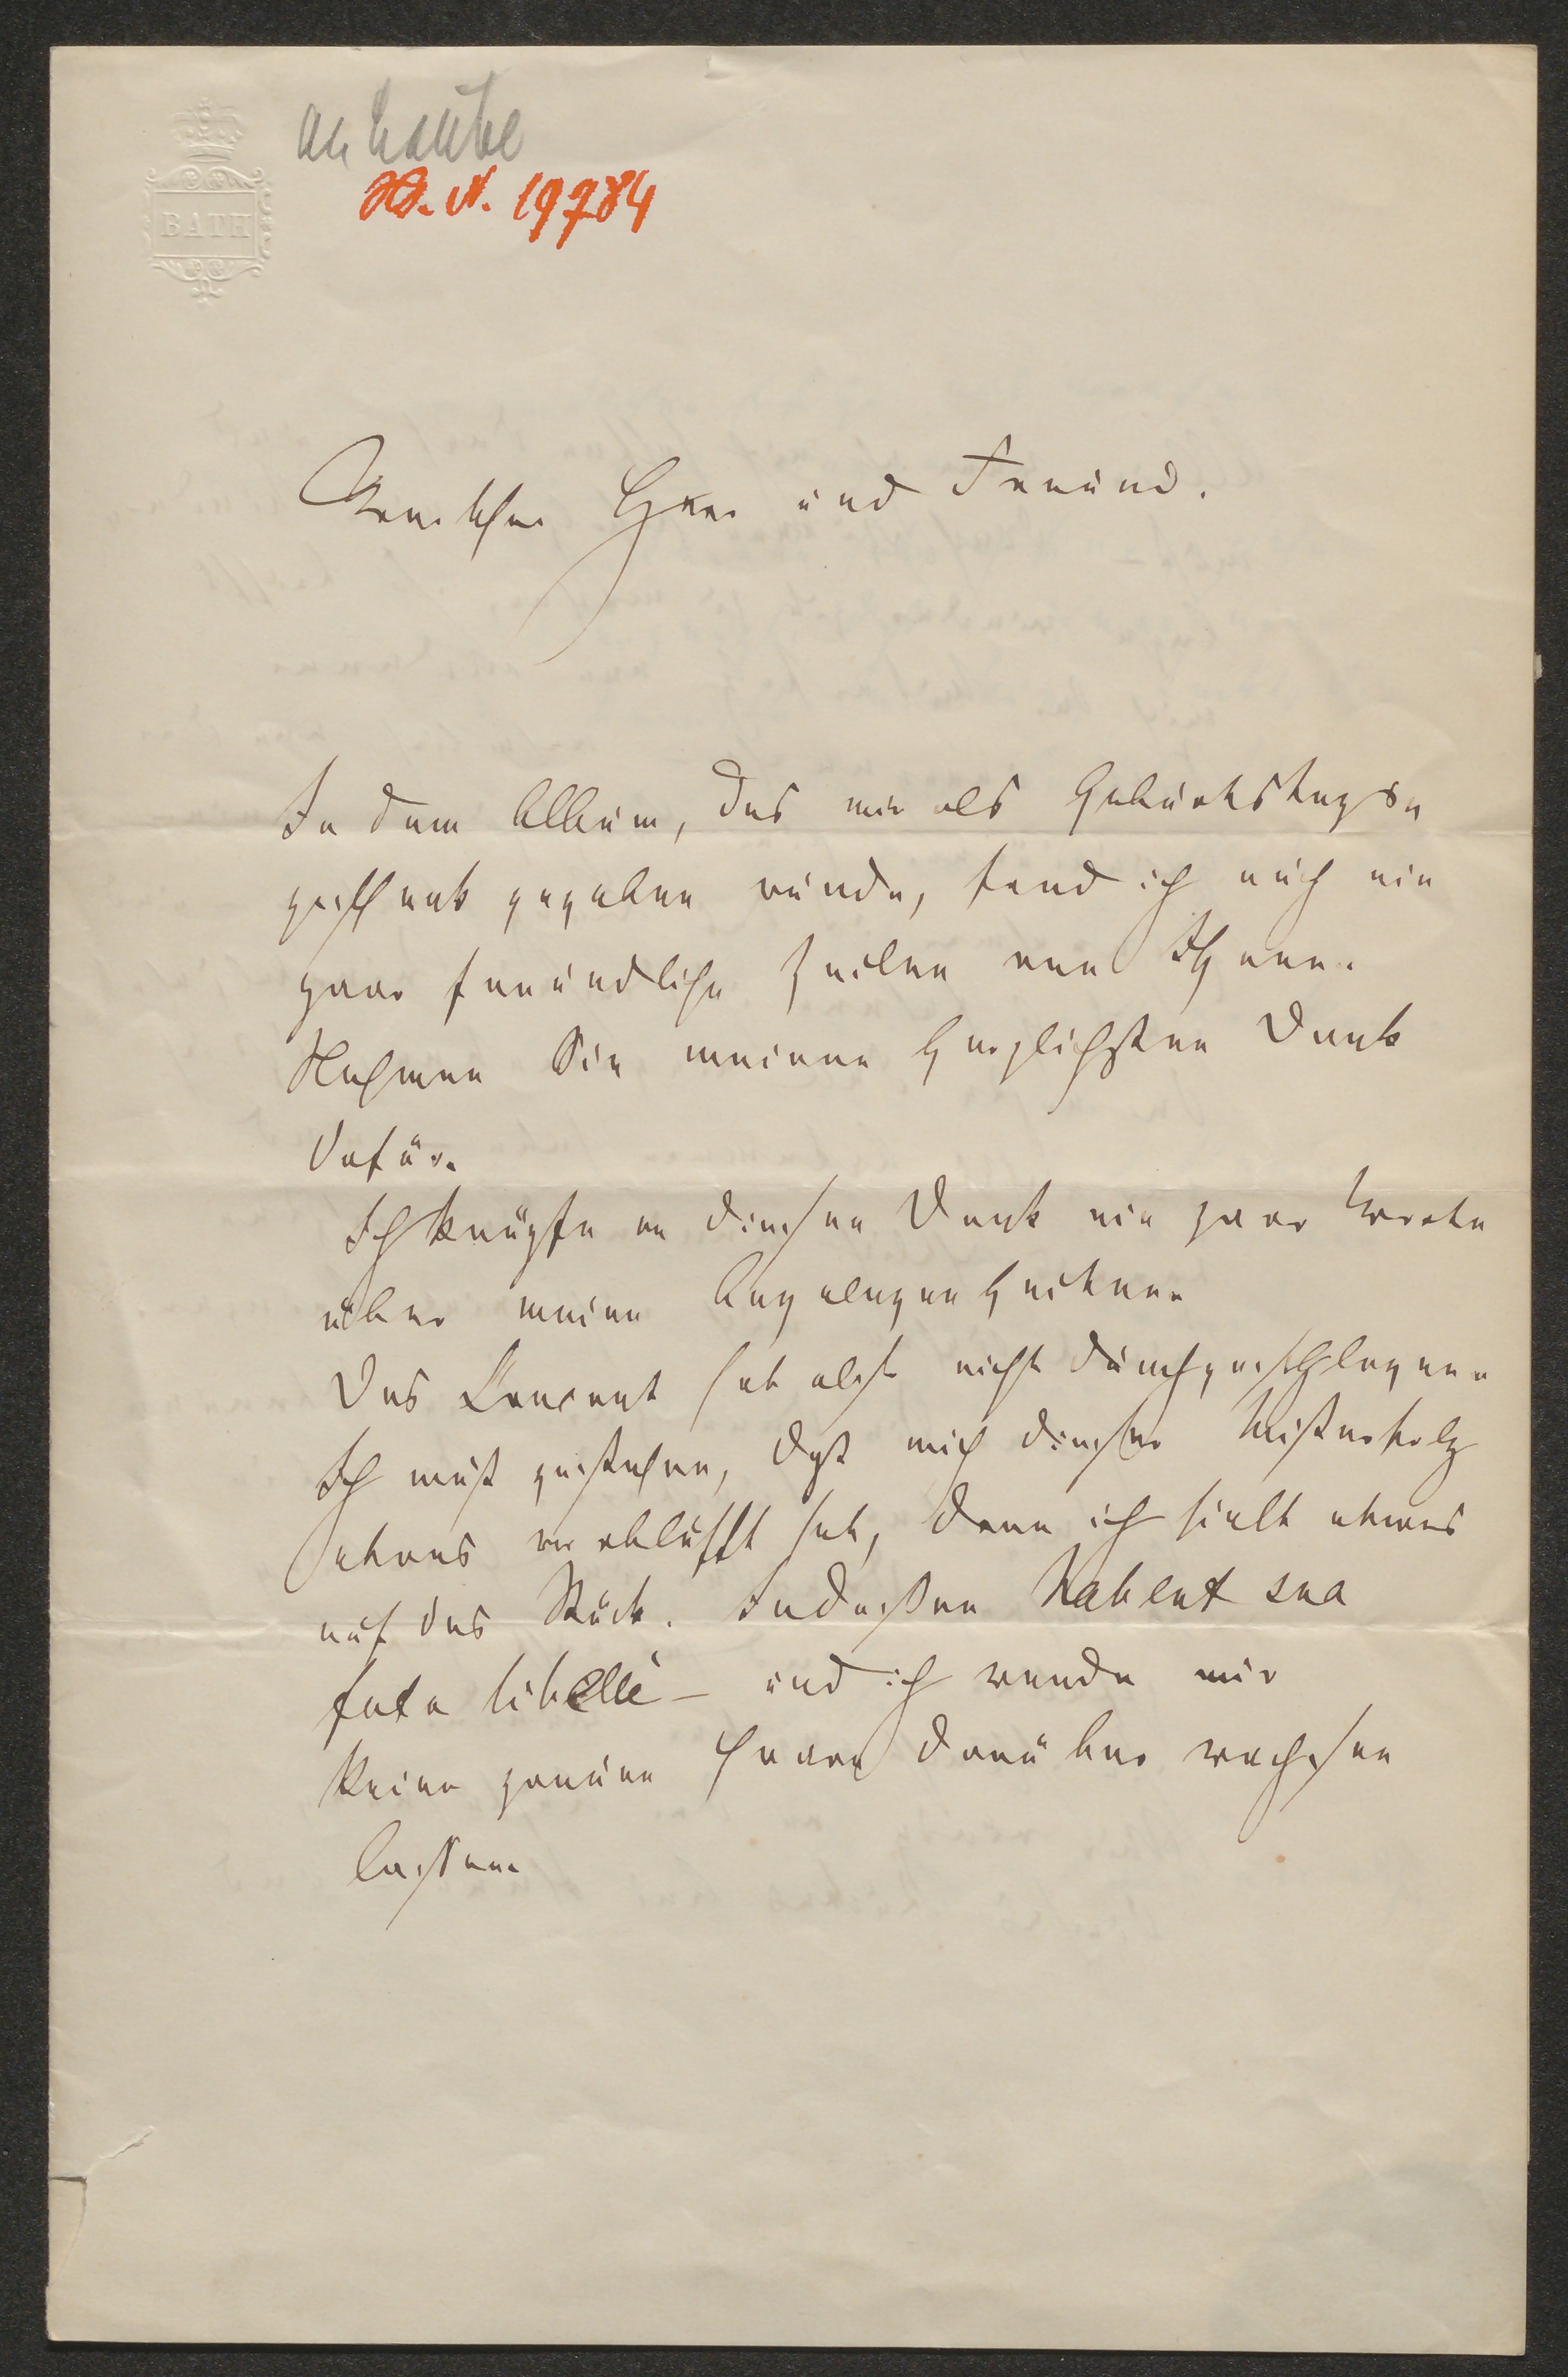 an Laube
H. N. 19784
BATH
Verehrter Herr und Freund.
In dem Album, das mir als Geburtstags
geschenk gegeben wurde, fand ich auch ein
paar freundliche Zeilen von Ihnen.
Nehmen Sie meinen herzlichsten Dank
dafür.
Ich knüpfe an diesen Dank ein paar Worte
über meine Angelegenheiten.
Das Concert hat also nicht durchgeschlagen.
Ich muß gestehen, daß mich dieser Mißerfolg
etwas verblüfft hat, denn ich hielt etwas
auf das Stück. Indessen habent sua
fata libelli – und ich werde mir
keine grauen Haare darüber wachsen
lassen.